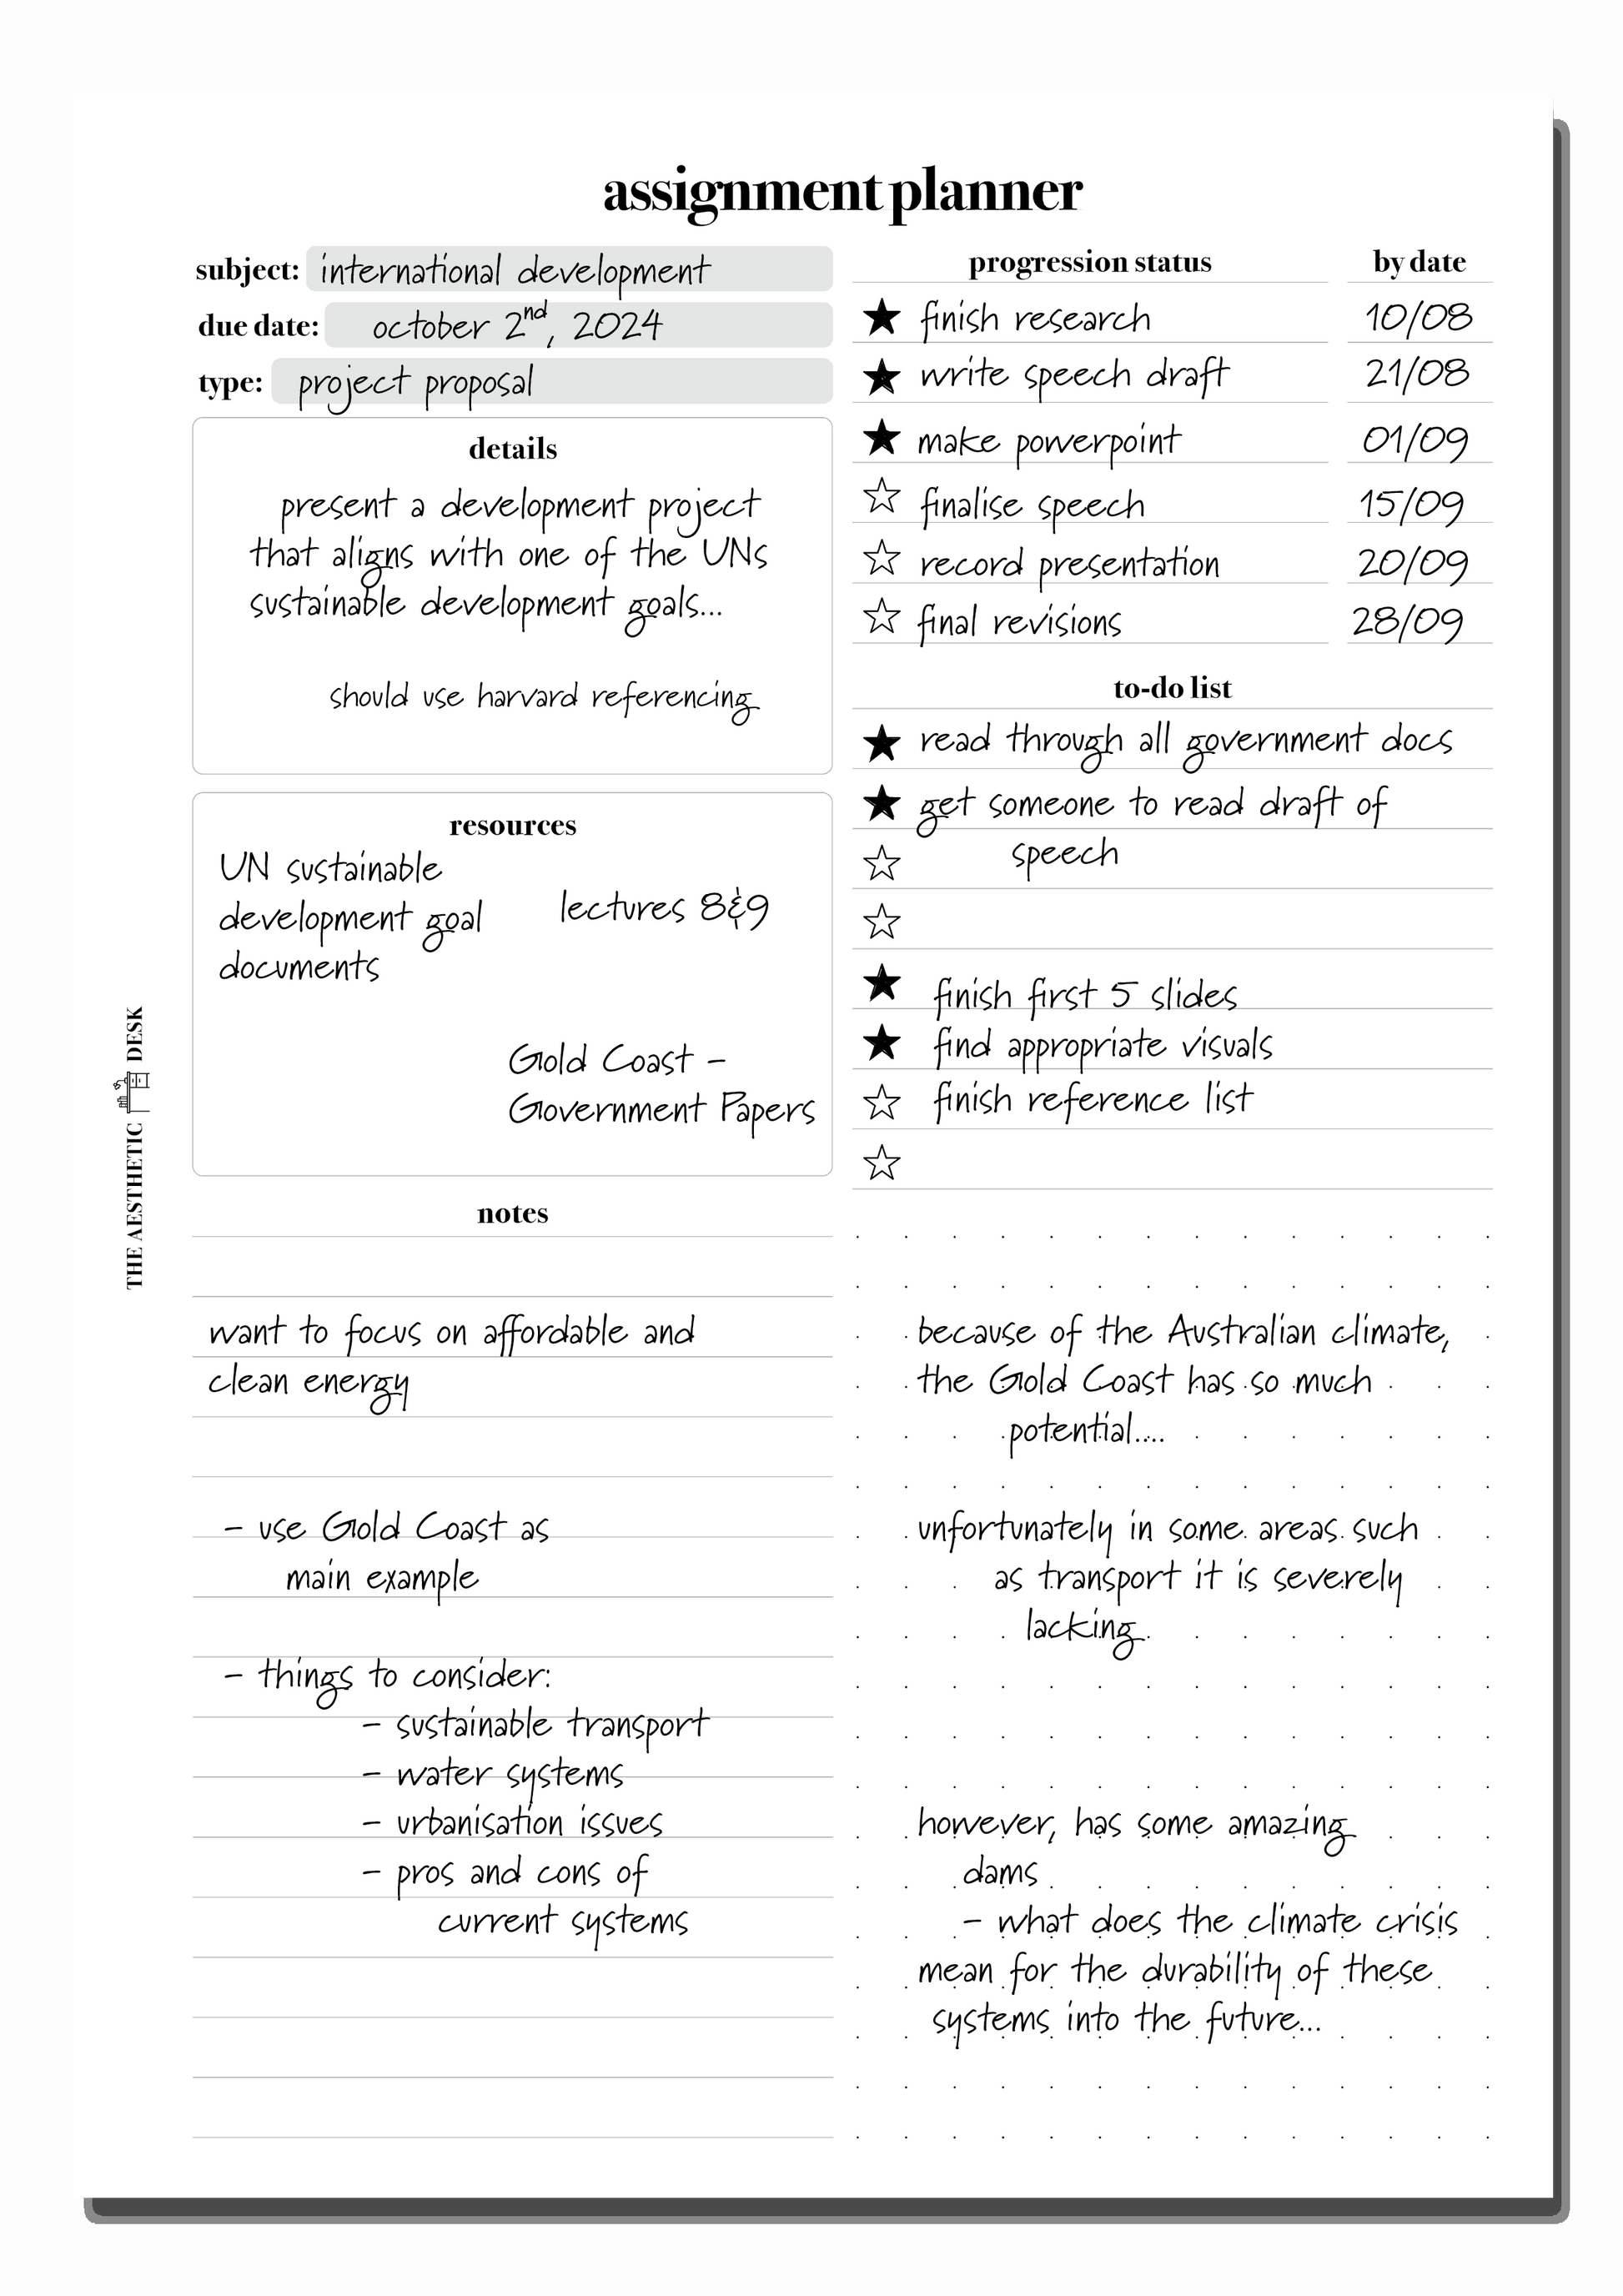 assignment planner
subject: international development
due date: october 2nd, 2024
type: project proposal
details
present a development project
that aligns with one of the UNs
sustainable development goals...
should use harvard referencing
resources
UN sustainable
development goal
documents
lectures 8&9
Gold Coast -
Government Papers
progression status by date
finish research 10/08
write speech draft 21/08
make powerpoint 01/09
finalise speech 15/09
record presentation 20/09
final revisions 28/09
to-do list
read through all government docs
get someone to read draft of
speech
finish first 5 slides
find appropriate visuals
finish reference list
THE AESTHETIC DESK
notes
want to focus on affordable and
clean energy
- use Gold Coast as
main example
- things to consider:
- sustainable transport
- water systems
- urbanisation issues
- pros and cons of
current systems
because of the Australian climate,
the Gold Coast has so much
potential....
unfortunately in some areas such
as transport it is severely
lacking
however, has some amazing
dams
- what does the climate crisis
mean for the durability of these
systems into the future...